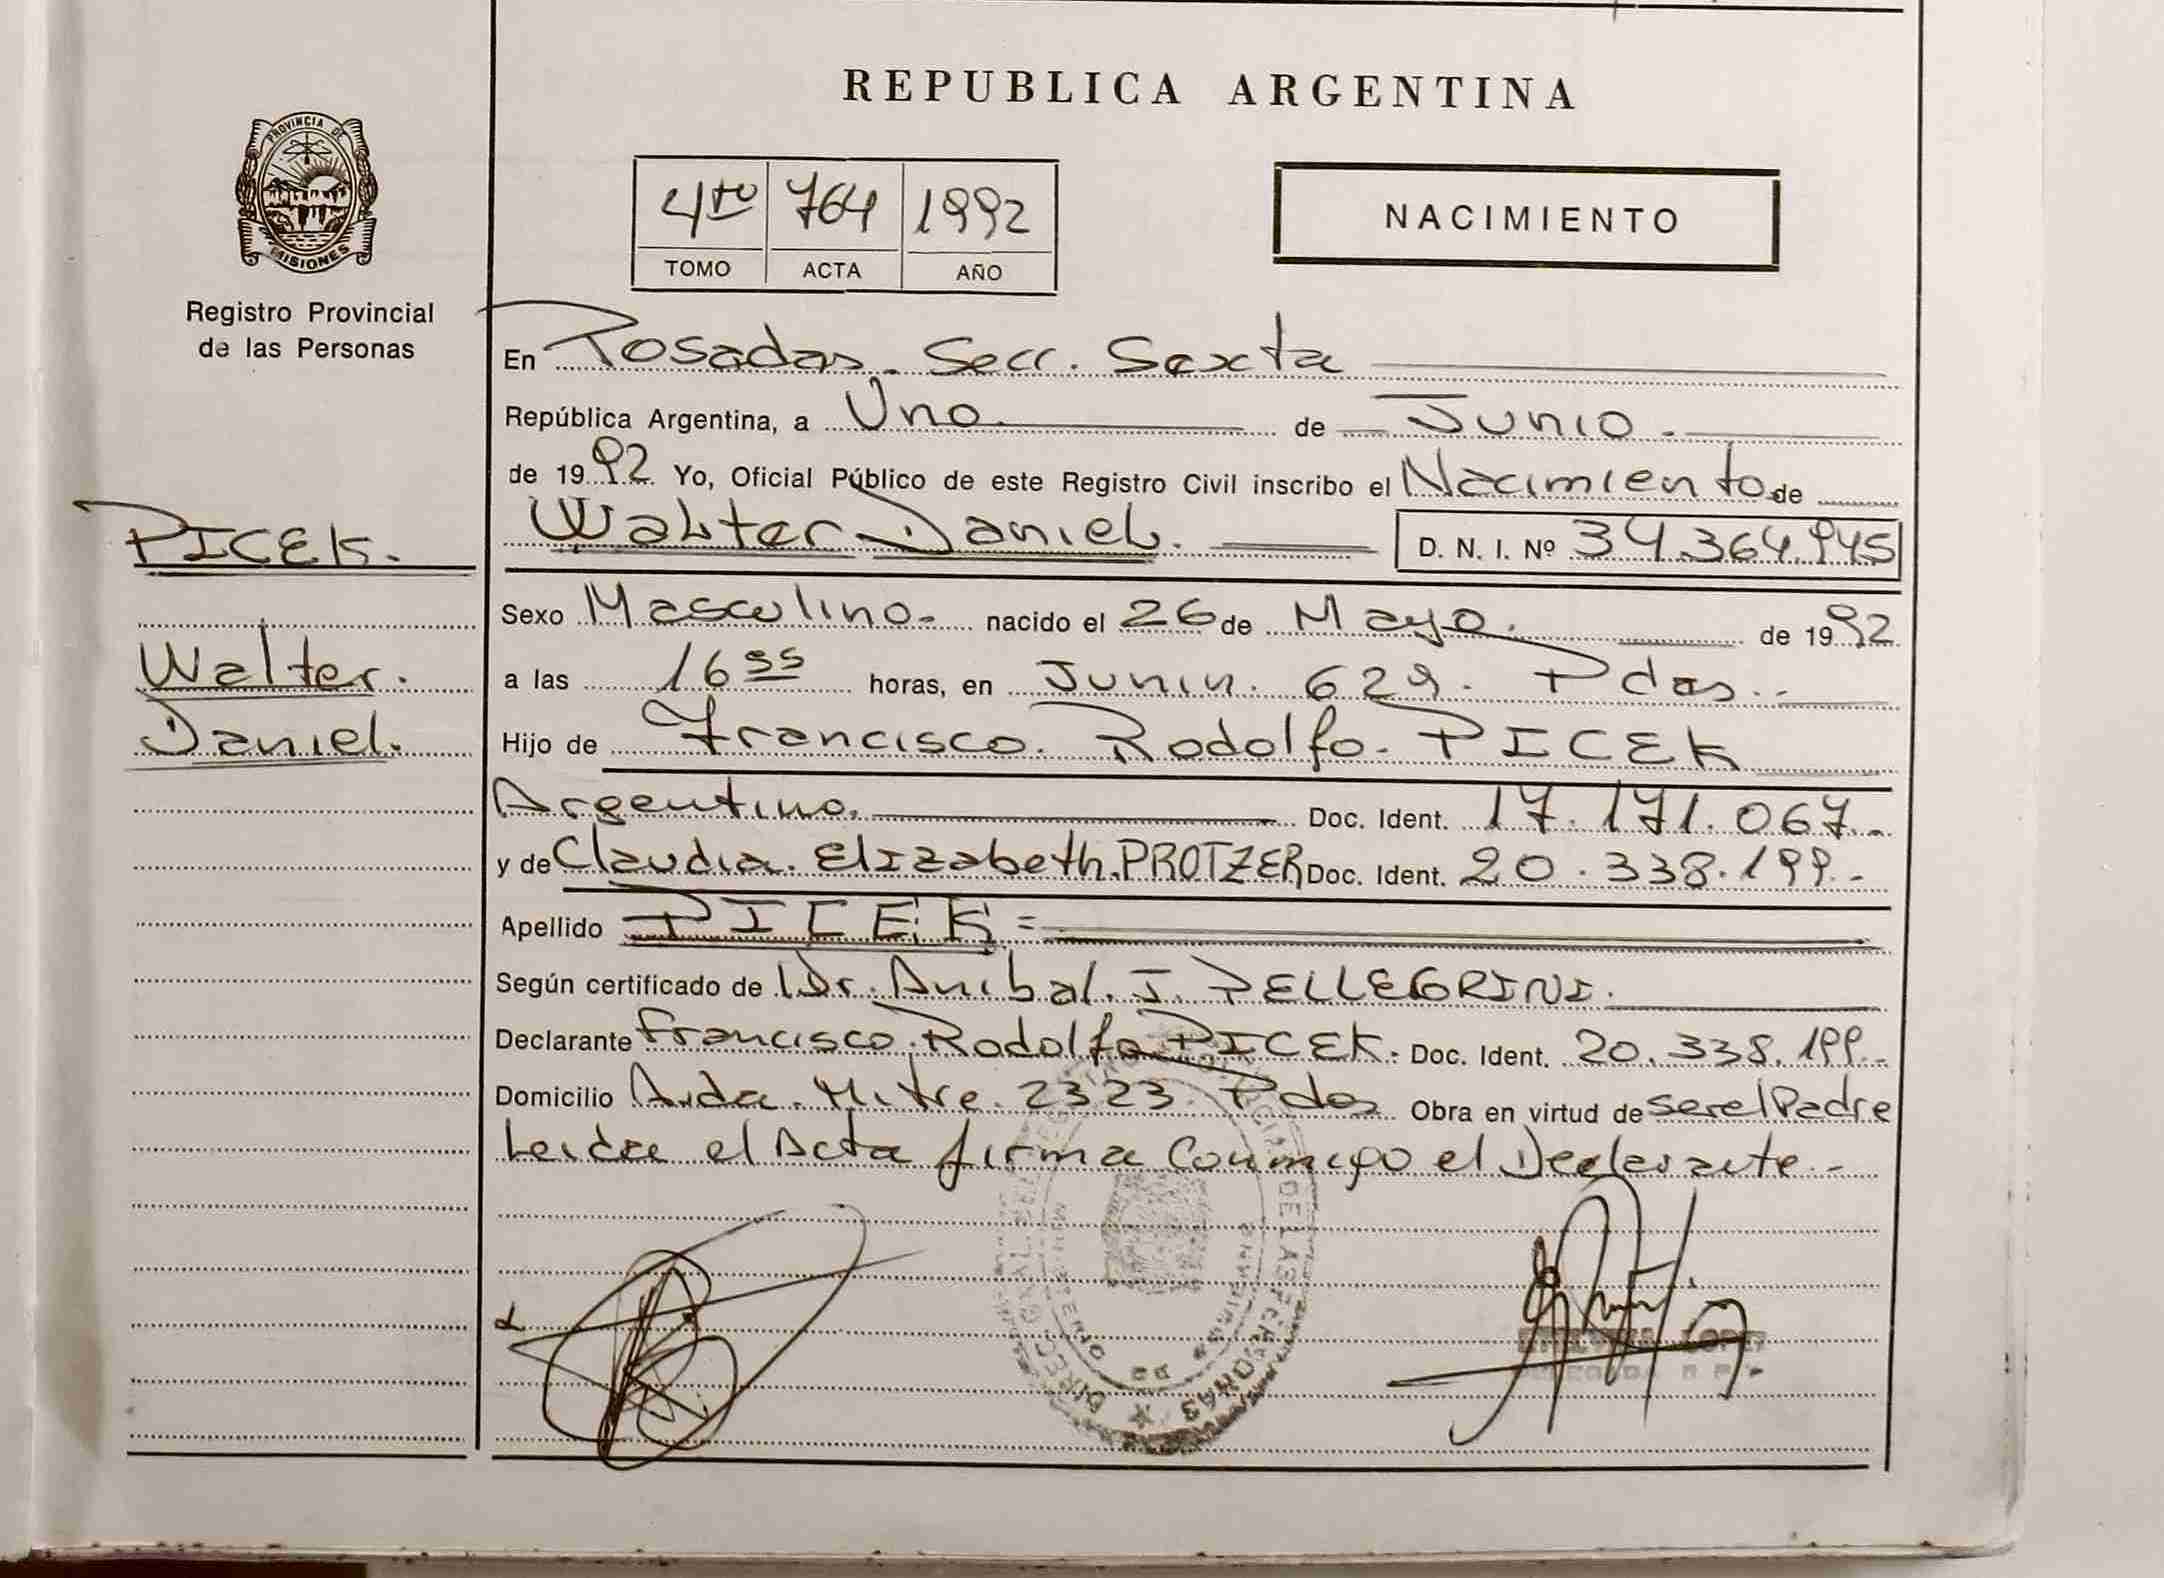 REPUBLICA ARGENTINA
PROVINCIA DE
MISIONES
Registro Provincial
de las Personas
4to 764 1992
TOMO ACTA AÑO
NACIMIENTO
En Posadas. Secc. Sexta
República Argentina, a Uno. de Junio.
de 1992. Yo, Oficial Público de este Registro Civil inscribo el Nacimiento de
PICEK.
Walter Daniel. D. N. I. Nº 34.364.945
Sexo Masculino. nacido el 26 de Mayo. de 1992
Walter.
a las 16 55 horas, en Junin. 629. Pdas.
Daniel.
Hijo de Francisco. Rodolfo. PICEK
Argentino. Doc. Ident. 17.171.067.
y de Claudia. Elizabeth. PROTZER Doc. Ident. 20.338.199.
Apellido PICEK
Según certificado de Dr. Anibal. J. PELLEGRINI.
Declarante Francisco. Rodolfo PICEK. Doc. Ident. 20.338.199.
Domicilio Avda. Mitre. 2323. Pdas Obra en virtud de ser el Padre
Leida el Acta firma conmigo el Declarante.